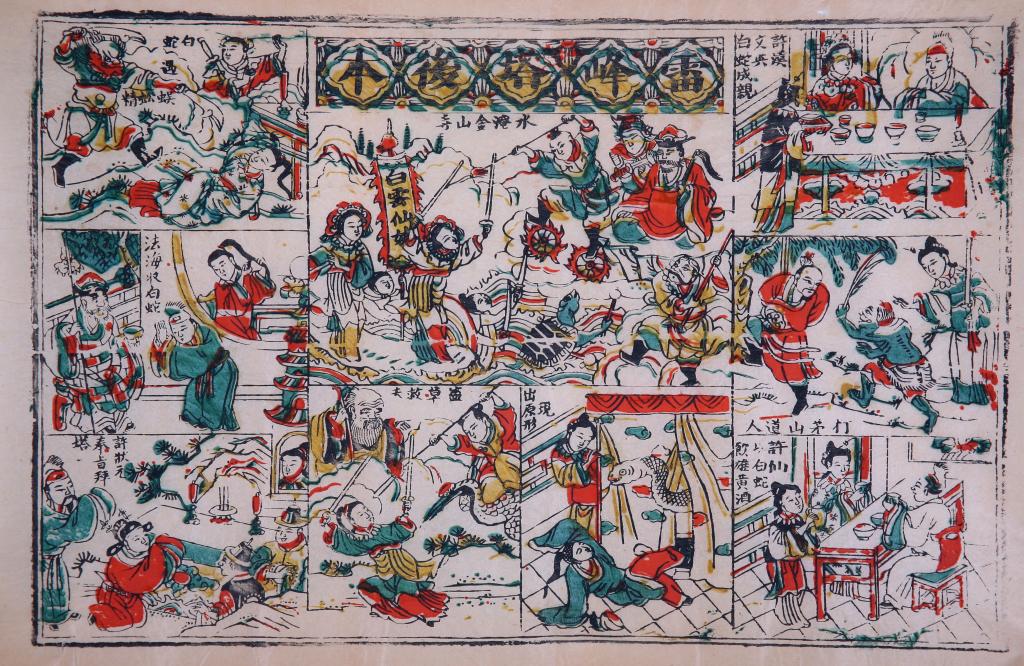 雷峰塔後本
許漢
文與
白蛇成親
水漫金山寺
白雲仙
白蛇
遇
蜈蚣精
法海收白蛇
打茅山道人
現
出原形
盜草救夫
許狀元
奉旨拜
塔
許仙
与白蛇
飲雄黃酒